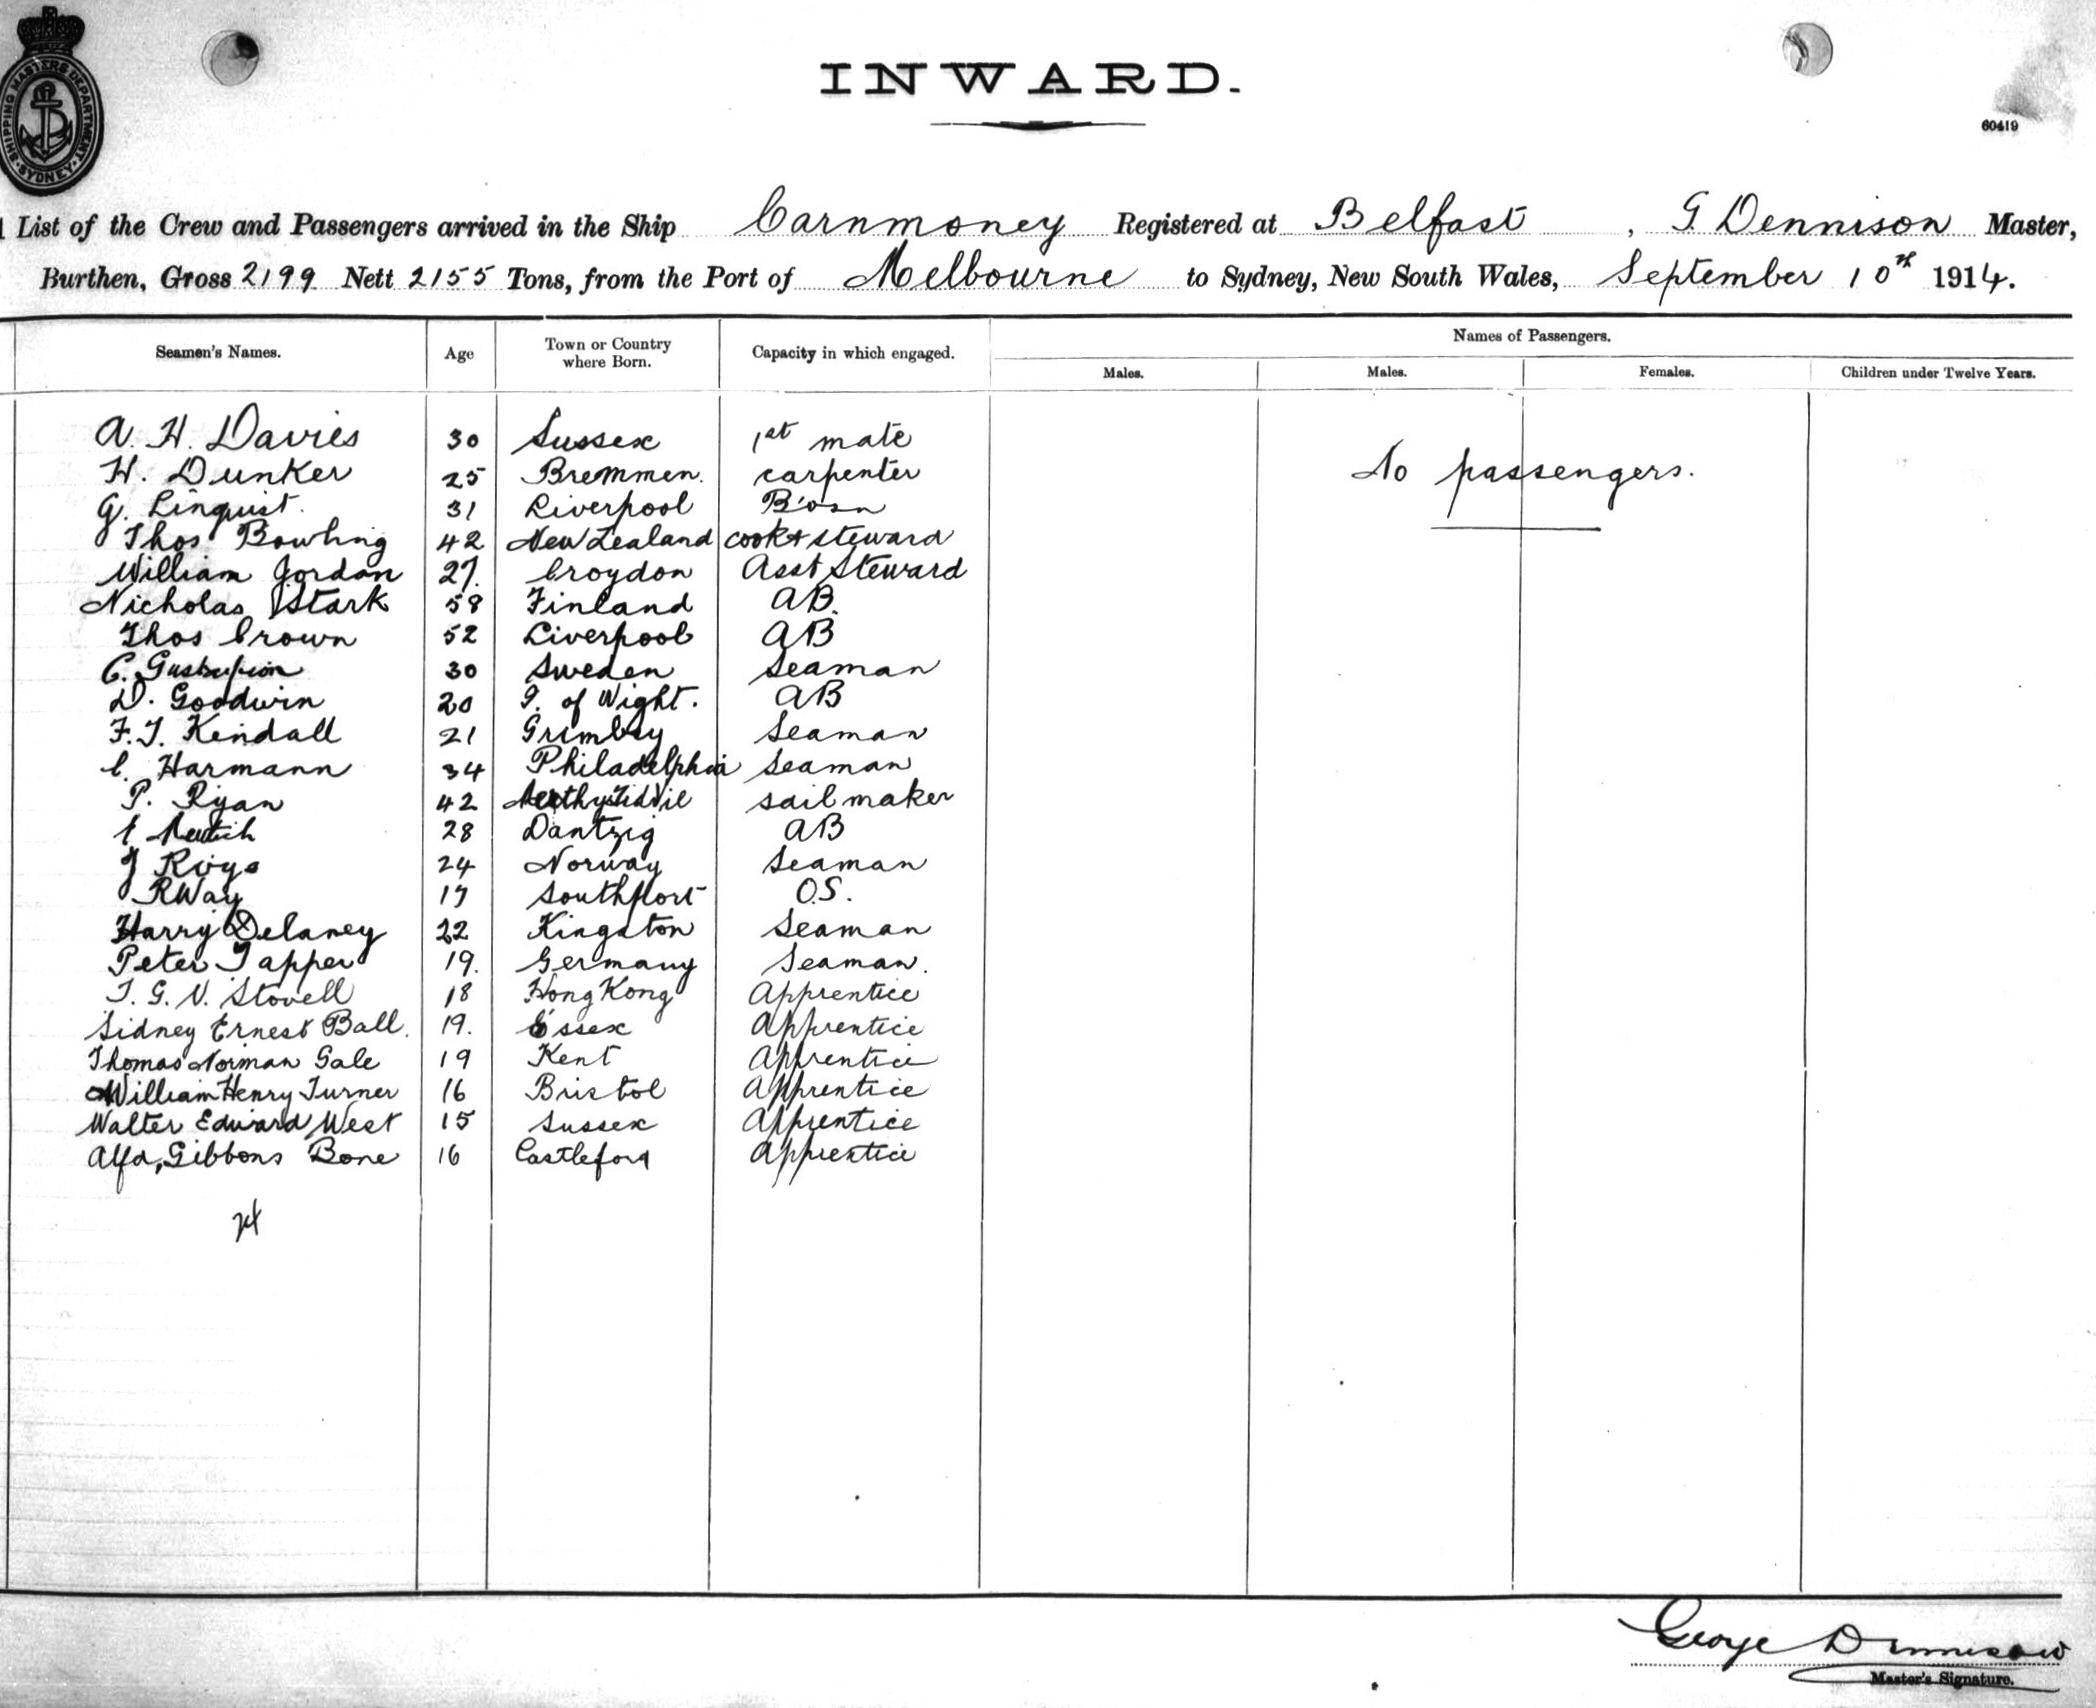 SHIPPING MASTERS DEPARTMENT SYDNEY
INWARD.
60419
List of the Crew and Passengers arrived in the Ship Carnmoney Registered at Belfast, G. Dennison Master,
Burthen, Gross 2199 Nett 2155 Tons, from the Port of Melbourne to Sydney, New South Wales, September 10th 1914.
Names of Passengers.
Seamen's Names. Age Town or Country where Born. Capacity in which engaged. Males. Males. Females. Children under Twelve Years.
A. H. Davies 30 Sussex 1st mate
No passengers.
H. Dunker 25 Bremmen. carpenter
G. Linquist. 31 Liverpool B'osn
Thos Bowling 42 New Zealand cook & steward
William Jordan 27. Croydon Asst Steward
Nicholas Stark 58 Finland AB.
Thos Crown 52 Liverpool AB
C. 30 Sweden Seaman
D. Goodwin 20 I. of Wight. AB
F. J. Kendall 21 Grimbsy Seaman
C. Harmann 34 Philadelphia Seaman
P. Ryan 42 sail maker
28 Dantzig AB
24 Norway Seaman
R Way 17 Southport O.S.
Harry Delaney 22 Kingston Seaman
Peter Tapper 19. Germany Seaman.
T. G. V. Stovell 18 Hong Kong Apprentice
Sidney Ernest Ball. 19. Essex Apprentice
Thomas Norman Gale 19 Kent Apprentice
William Henry Turner 16 Bristol Apprentice
Walter Edward West 15 Sussex Apprentice
Alfd, Gibbons Bone 16 Castleford Apprentice
George Dennison
Master's Signature.